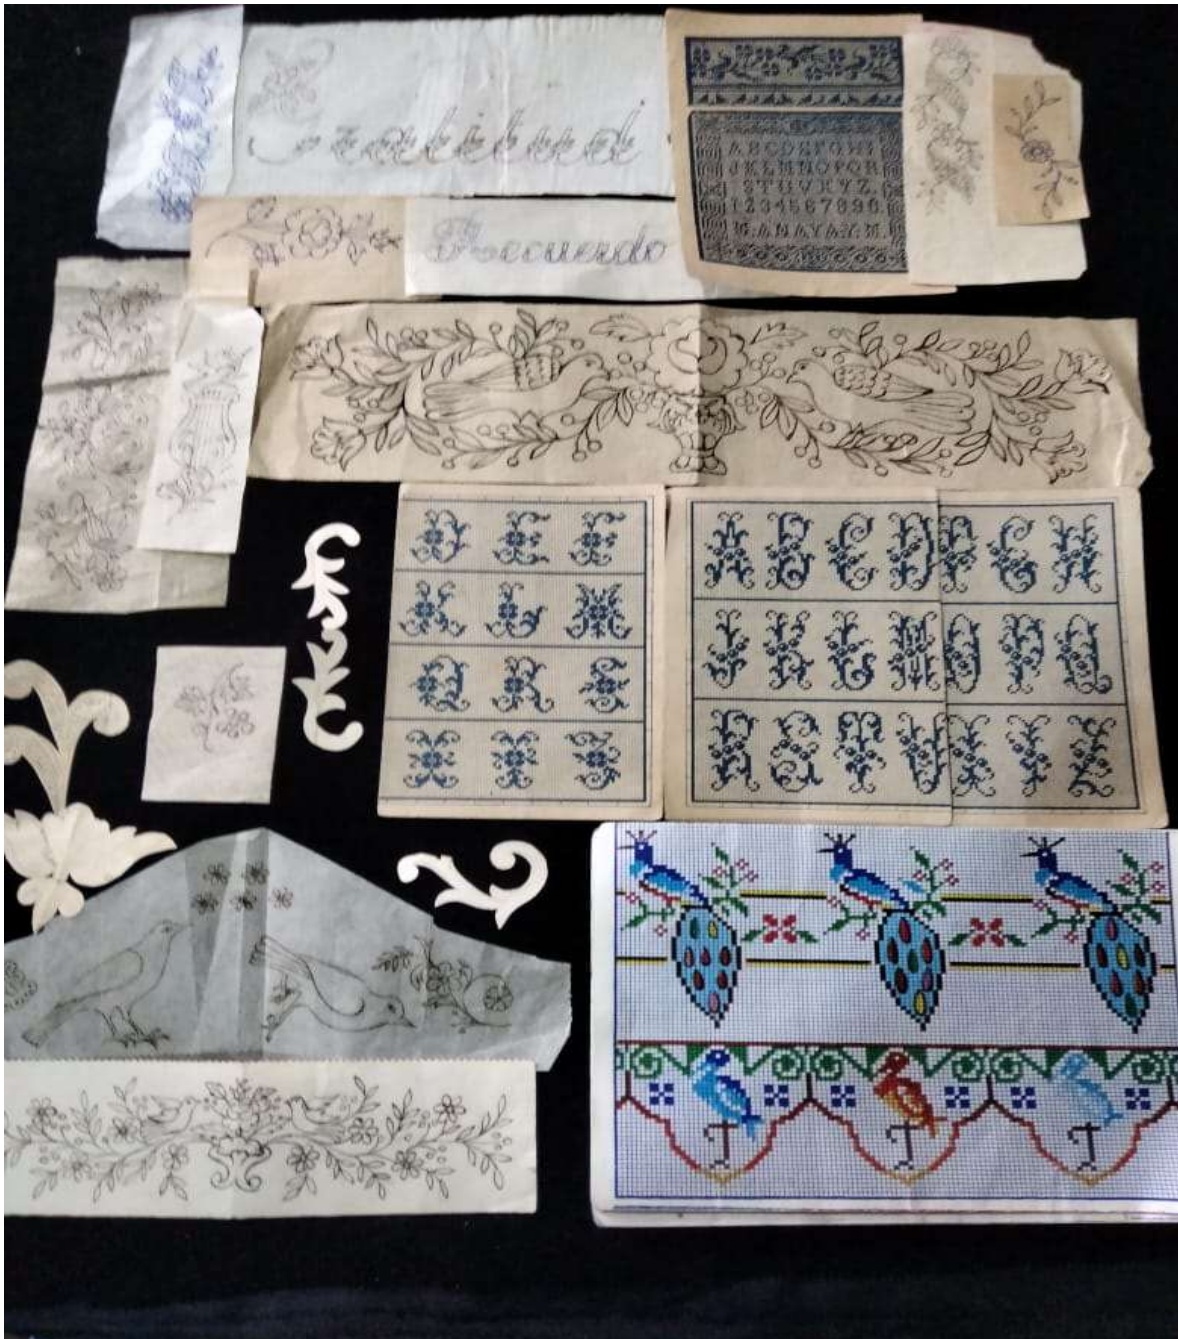 Recuerdo
ABCDEFGHI
JKLMNOPQR
STUVXYZ
1234567890.
D E F
K L M
Q R S
X Y Z
A B C D F G H
J K L M O P Q
R S T U X Y Z